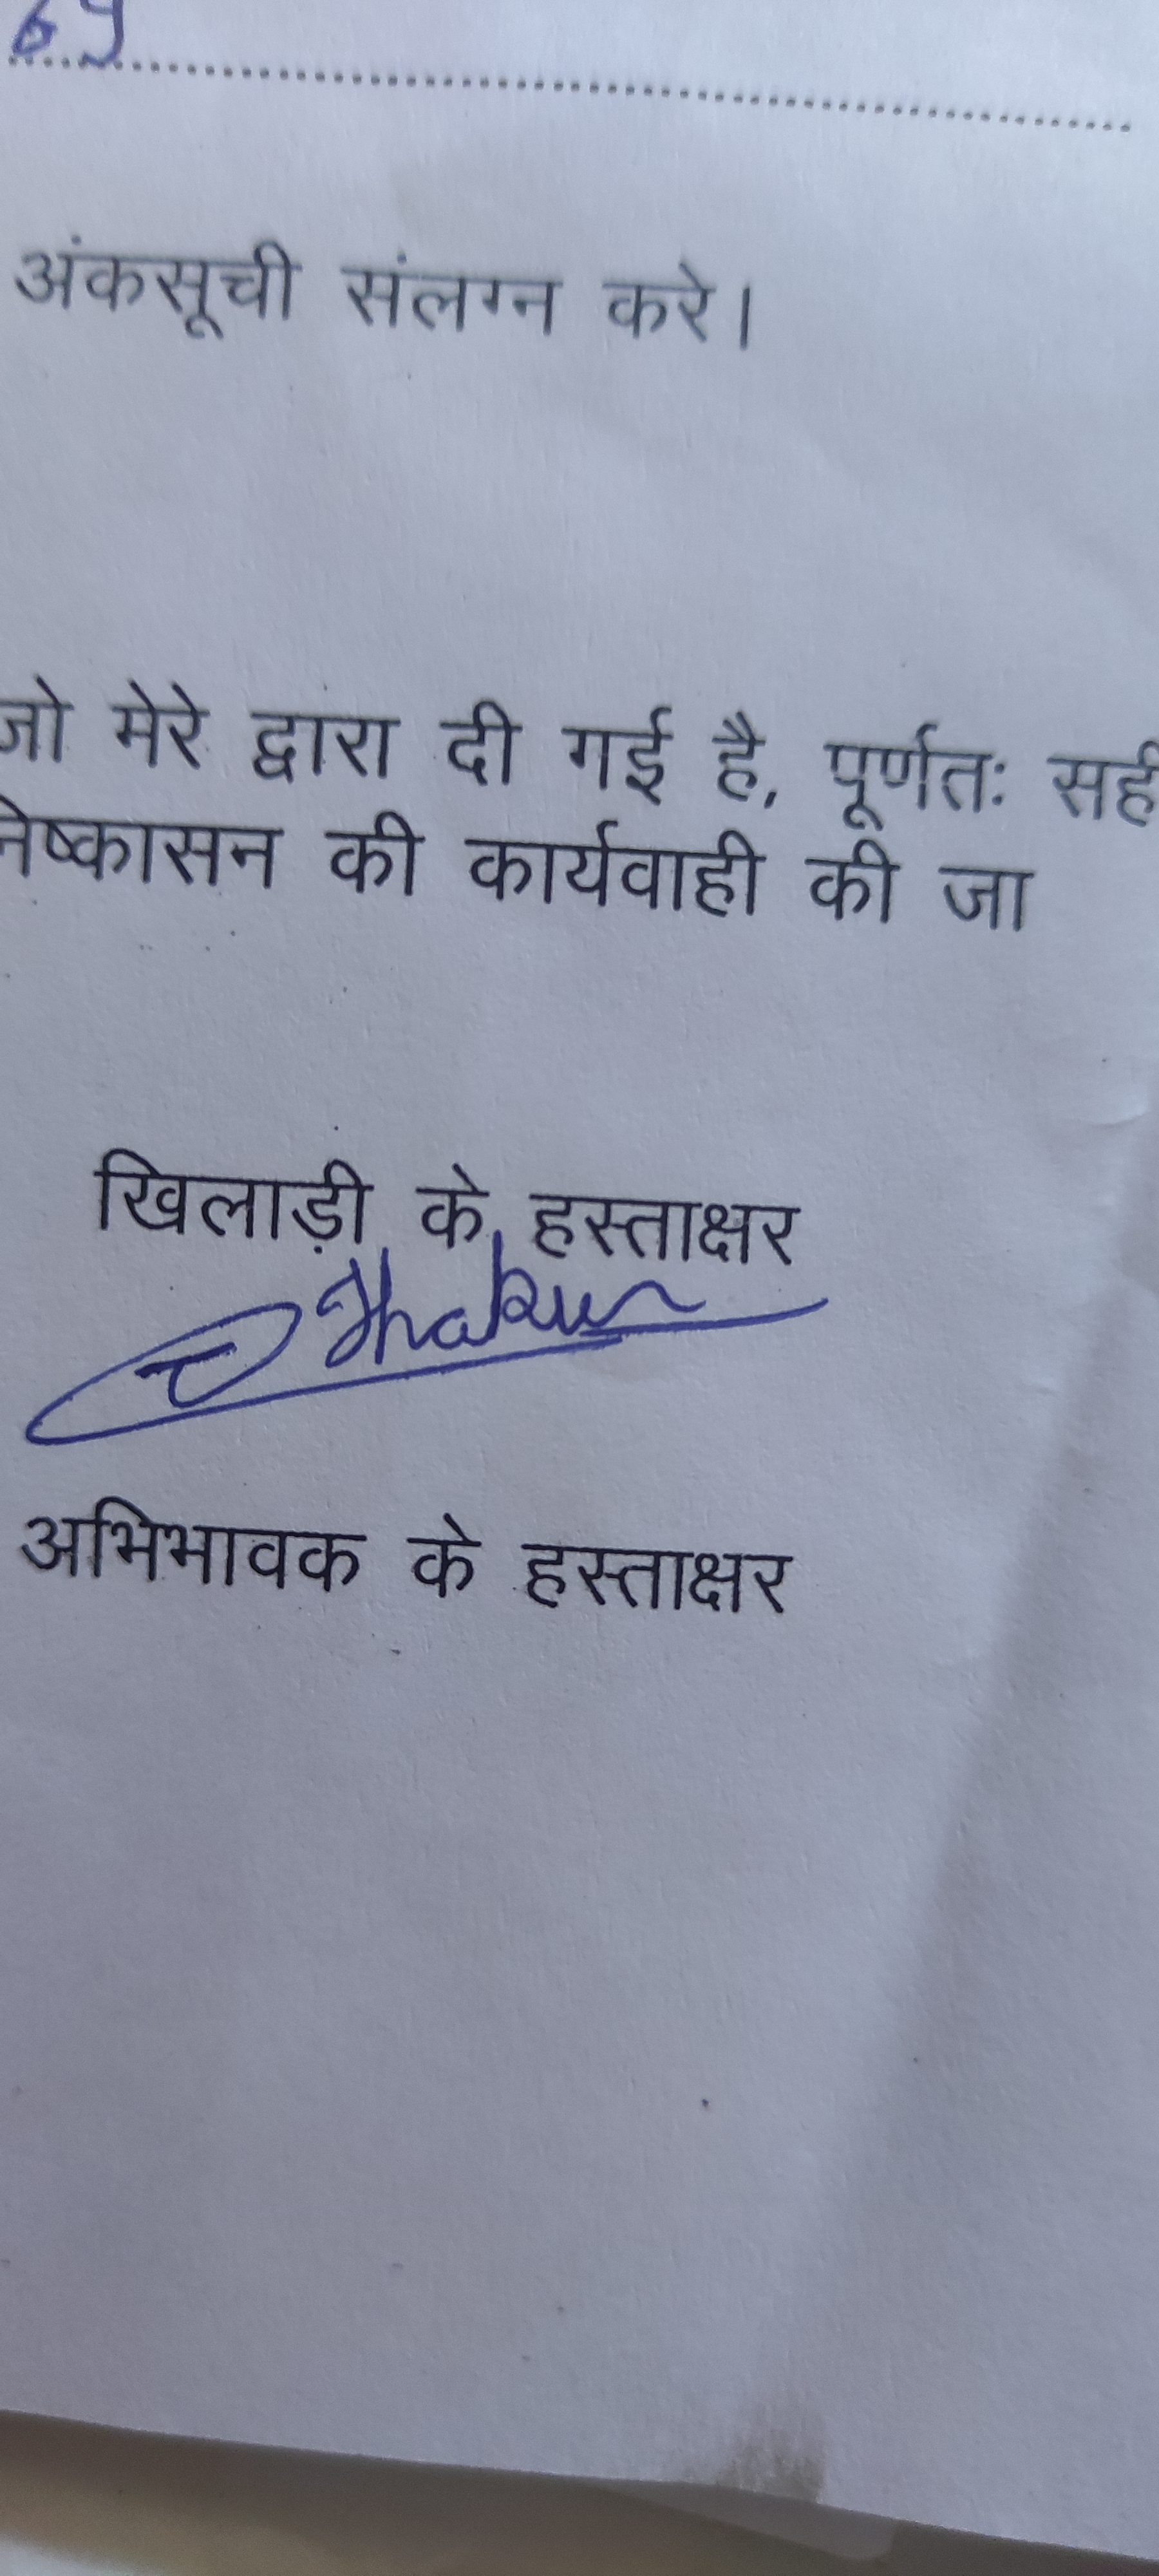 69
अंकसूची संलग्न करे।
जो मेरे द्वारा दी गई है, पूर्णतः सही
निष्कासन की कार्यवाही की जा
खिलाड़ी के हस्ताक्षर
Thakur
अभिभावक के हस्ताक्षर